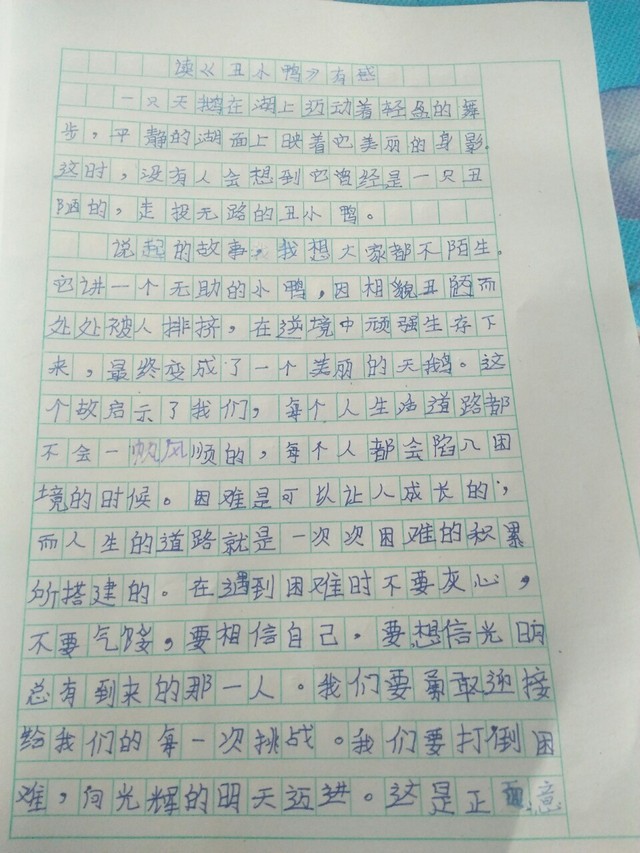 读《丑小鸭》有感
一只天鹅在湖上迈动着轻盈的舞
步，平静的湖面上映着它美丽的身影.
这时，没有人会想到它曾经是一只丑
陋的，走投无路的丑小鸭。
说起的故事，我想大家都不陌生。
它讲一个无助的小鸭，因相貌丑陋而
处处被人排挤，在逆境中顽强生存下
来，最终变成了一个美丽的天鹅。这
个故启示了我们，每个人生活道路都
不会一帆风顺的，每个人都会陷入困
境的时候。困难是可以让人成长的，
而人生的道路就是一次次困难的积累
所搭建的。在遇到困难时不要灰心，
不要气馁，要相信自己，要想信光明
总有到来的那一人。我们要勇敢迎接
给我们的每一次挑战。我们要打倒困
难，向光辉的明天迈进。这是正面意